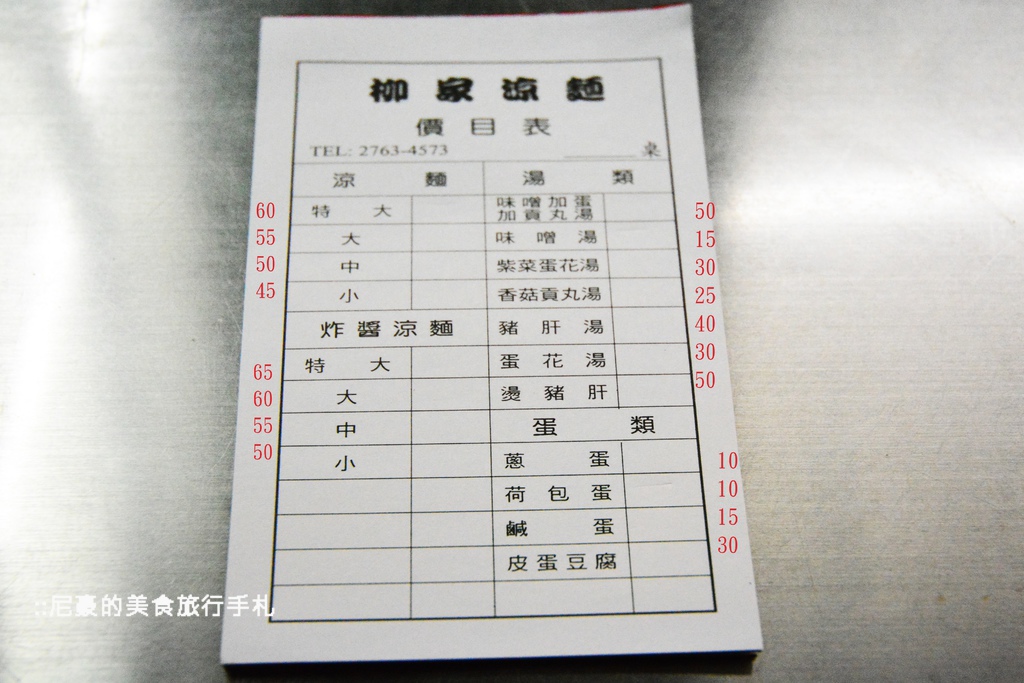 柳家涼麵
價目表
TEL: 2763-4573 ______桌
涼麵 湯類
60 特大 味噌加蛋加貢丸湯 50
55 大 味噌湯 15
50 中 紫菜蛋花湯 30
45 小 香菇貢丸湯 25
炸醬涼麵 豬肝湯 40
65 特大 蛋花湯 30
60 大 燙豬肝 50
55 中 蛋類
50 小 蔥蛋 10
荷包蛋 10
鹹蛋 15
皮蛋豆腐 30
::尼豪的美食旅行手札